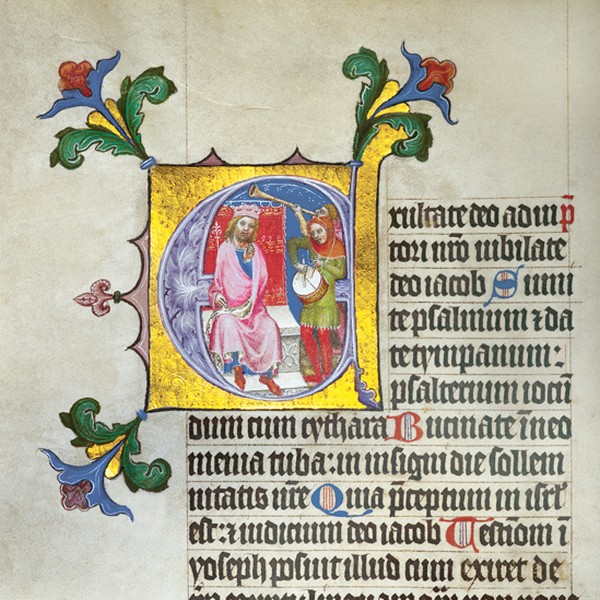 Exultate deo adiuto p̄
tori nr̄o iubilate
deo iacob Sumi
te psalmum ⁊ da
te tympanum:
psalterium iocū
dum cum cythara Bucinate ī neo
menia tuba: in insigni die sollem
nitatis ur̄e Quia p̄ceptum in isrl̄
est: ⁊ iudicium deo iacob Testīom ī
yoseph posuit illud cum exiret de